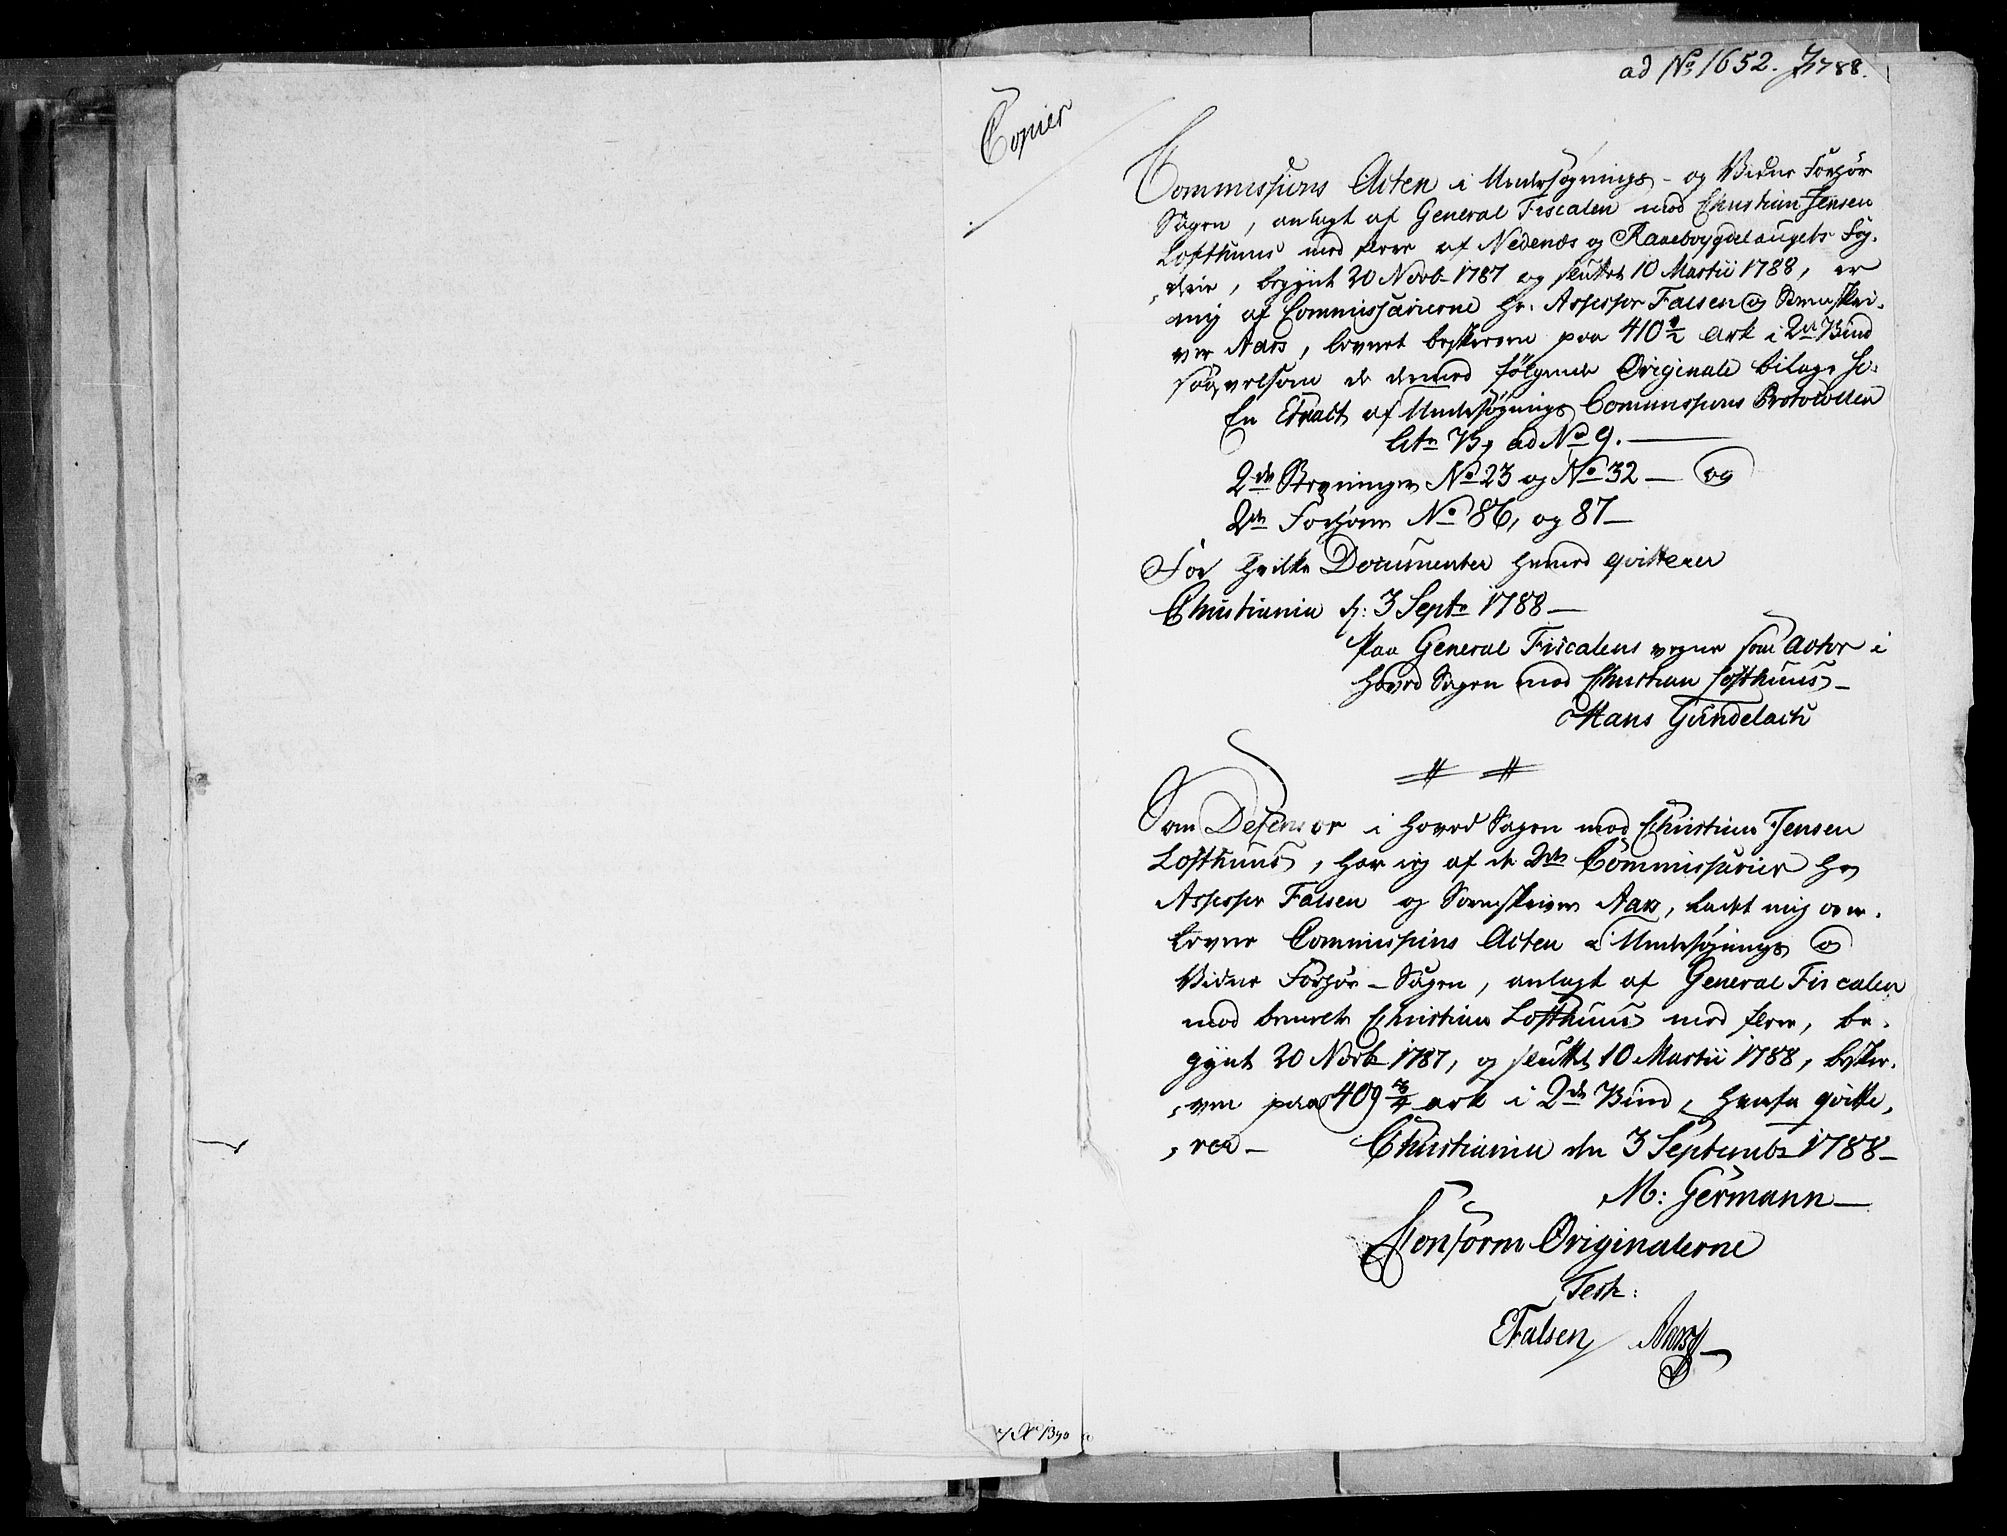 ad No 1652. J 788.
Copier
Commissions Acten i Undersøgnings- og Vidne Forhør
Sagen, anlagt af General Fiscalen mod Christian Jensen
Lofthuus med flere af Nedenæs og Raaebøygdelaugets Fog,
„derie, begynt 20 Novb. 1787 og sluttet 10 Martii 1788, er
mig af Commissairerne Hr. Assessor Falsen og Sorenskri-
ver Aars, levert beskreven paa 410 1/2 Ark i 2de Bind
saavelsom de dermed følgende Originale bilage sc:
En Extract af Undersøgnings Commissions Protocollen
Litr. B, ad No 9.
2de Stevninger No 23 og No 32 — og
2de Forhører No 86, og 87 —
For hvilke Documenter herved qvitterer
Christiania d: 3 Septr 1788 —
Paa General Fiscalens vegne som Actor i
Hoved Sagen mod Christian Lofthuus —
Hans Gundelach
Som Defensor i Hoved Sagen mod Christian Jensen
Lofthuus, har jeg af de 2de Commissarier Hr
Assessor Falsen og Sorenskriver Aars, ladet mig over-
levere Commissions Acten i Undersøgnings og
Vidne Forhør-Sagen, anlagt af General Fiscalen
mod bemeldte Christian Lofthuus med flere, be-
gynt 20 Novb. 1787, og sluttet 10 Martii 1788, beskre-
„ven paa 409 3/4 ark i 2de Bind, herfor qvitte,
„rer — Christiania den 3 Septembr 1788 —
M: Germann —
Conform Originalerne
Test:
EFalsen / Aars